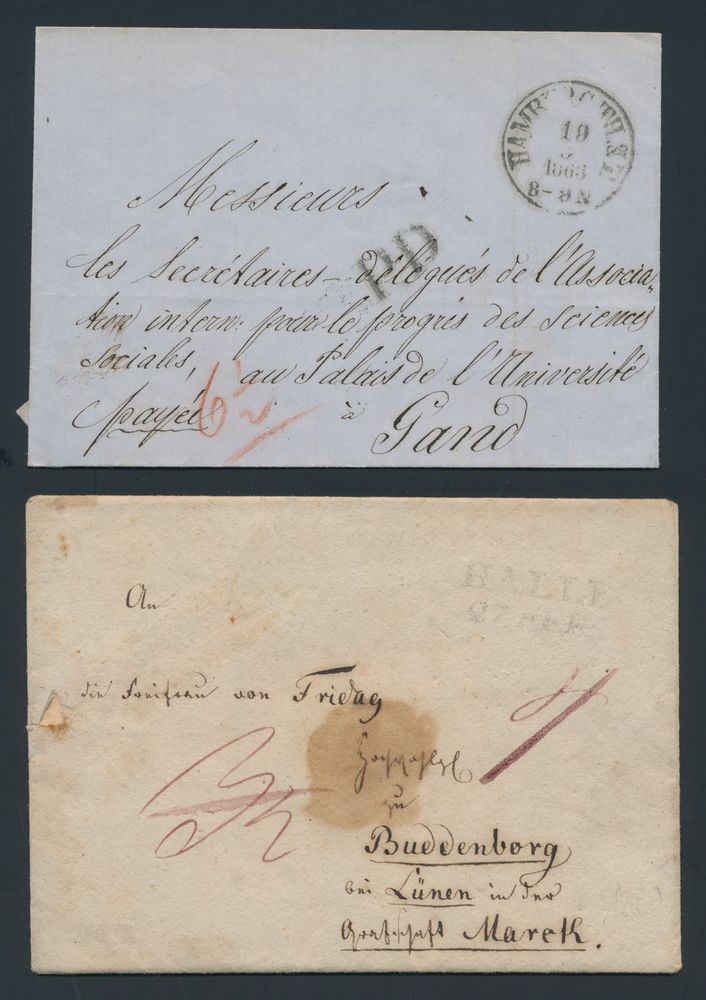 HAMBURG TH.&T.
19
1863
8-9N
Messieurs
PD
les Secrétaires-Délégués de l'Associa„
tion intern: pour le progrès des sciences
sociales, au Palais de l'Université
payée 6½ à Gand
HALLE
27
An
die Freifrau von Fridag
zu
Buddenborg
bei Lünen in der
Grafschaft Marck.